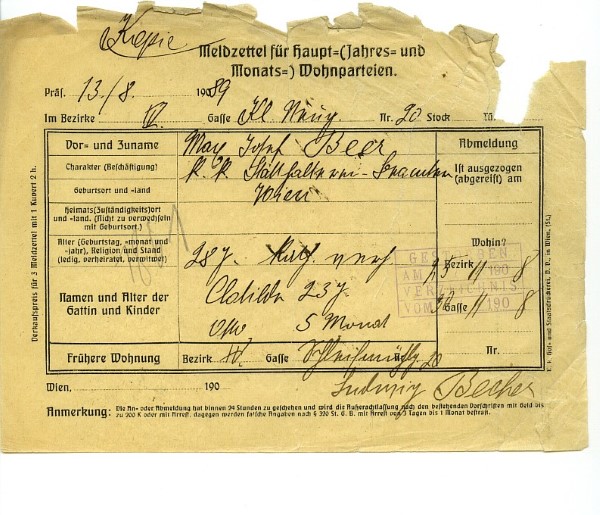 Kopie
Meldzettel für Haupt=(Jahres= und
Monats=) Wohnparteien.
Präs. 13./8. 190 89
Im Bezirke IV. Gasse Kl. Neug Nr. 20 Stock T.
Vor= und Zuname May Josef Beer
Charakter (Beschäftigung) K. K. Statthalterei-Beamter
Geburtsort und =land Wien
Heimats(Zuständigkeits)ort
und =land. (Nicht zu verwechseln
mit Geburtsort.)
Alter (Geburtstag, =monat und
=jahr), Religion und Stand
(ledig, verheiratet, verwitwet)
28 J. Kath. verh
Namen und Alter der
Gattin und Kinder
Clotilde 23 J.
Otto 5 Monat
Frühere Wohnung Bezirk IV. Gasse Schleifmühlg 20 Nr.
Abmeldung
Ist ausgezogen
(abgereist) am
Wohin?
Bezirk
Gasse
25 11 8
30 11 8
AM 190
VERZEICHNIS
VOM 190
Wien, 190
Ludwig Becher
Anmerkung: Die An= oder Abmeldung hat binnen 24 Stunden zu geschehen und wird die Außerachtlassung nach den bestehenden Vorschriften mit Geld bis
zu 200 K oder mit Arrest, dagegen werden falsche Angaben nach § 320 St. G. B. mit Arrest von 3 Tagen bis 1 Monat bestraft.
Verkaufspreis für 3 Meldzettel mit 1 Kuvert 2 h.
K. k. Hof= und Staatsdruckerei, D. D., in Wien. (St.)